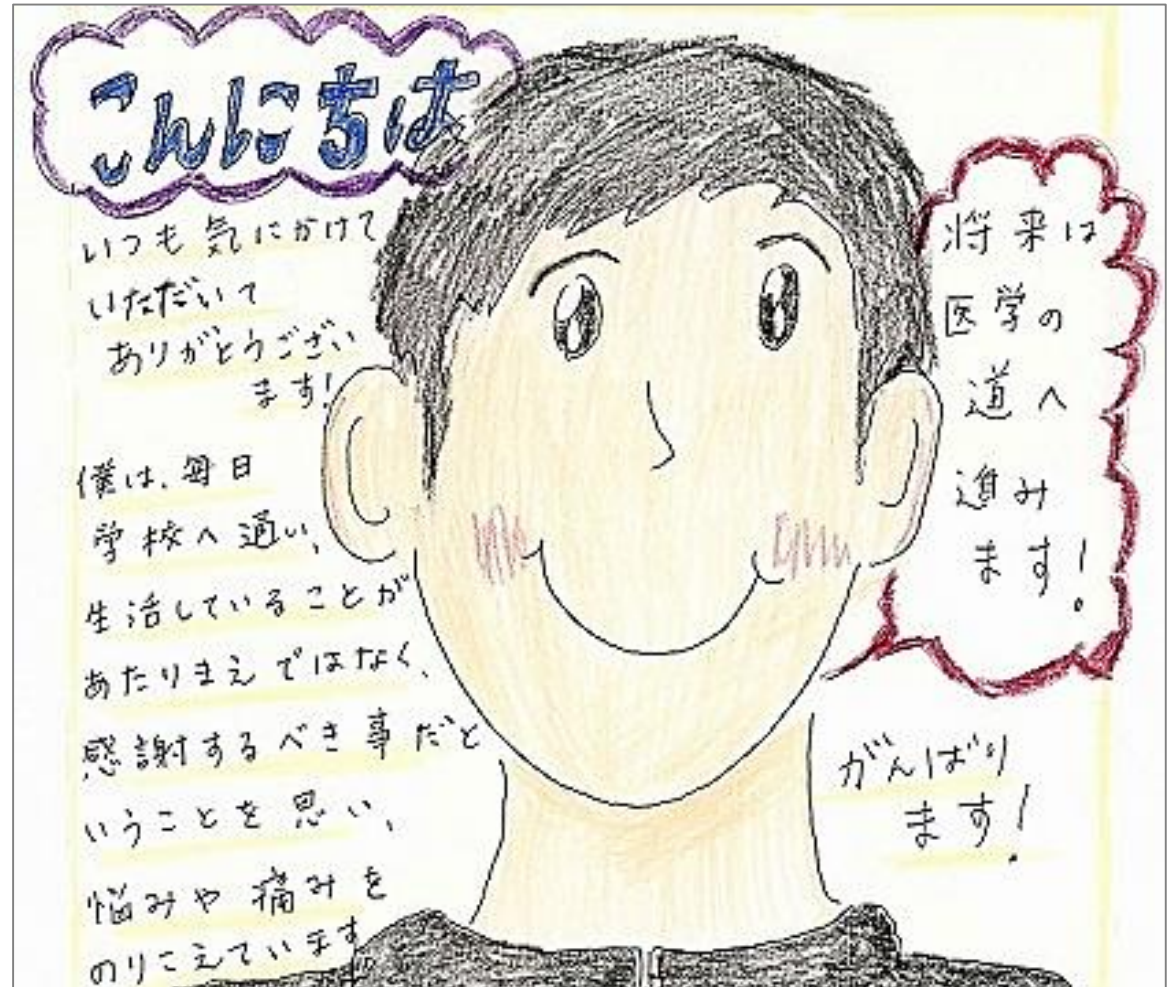 こんにちは
いつも気にかけて
いただいて
ありがとうござい
ます!
僕は、毎日
学校へ通い、
生活していることが
あたりまえではなく、
感謝するべき事だと
いうことを思い、
悩みや痛みを
のりこえています。
将来は
医学の
道へ
進み
ます!
がんばり
ます!